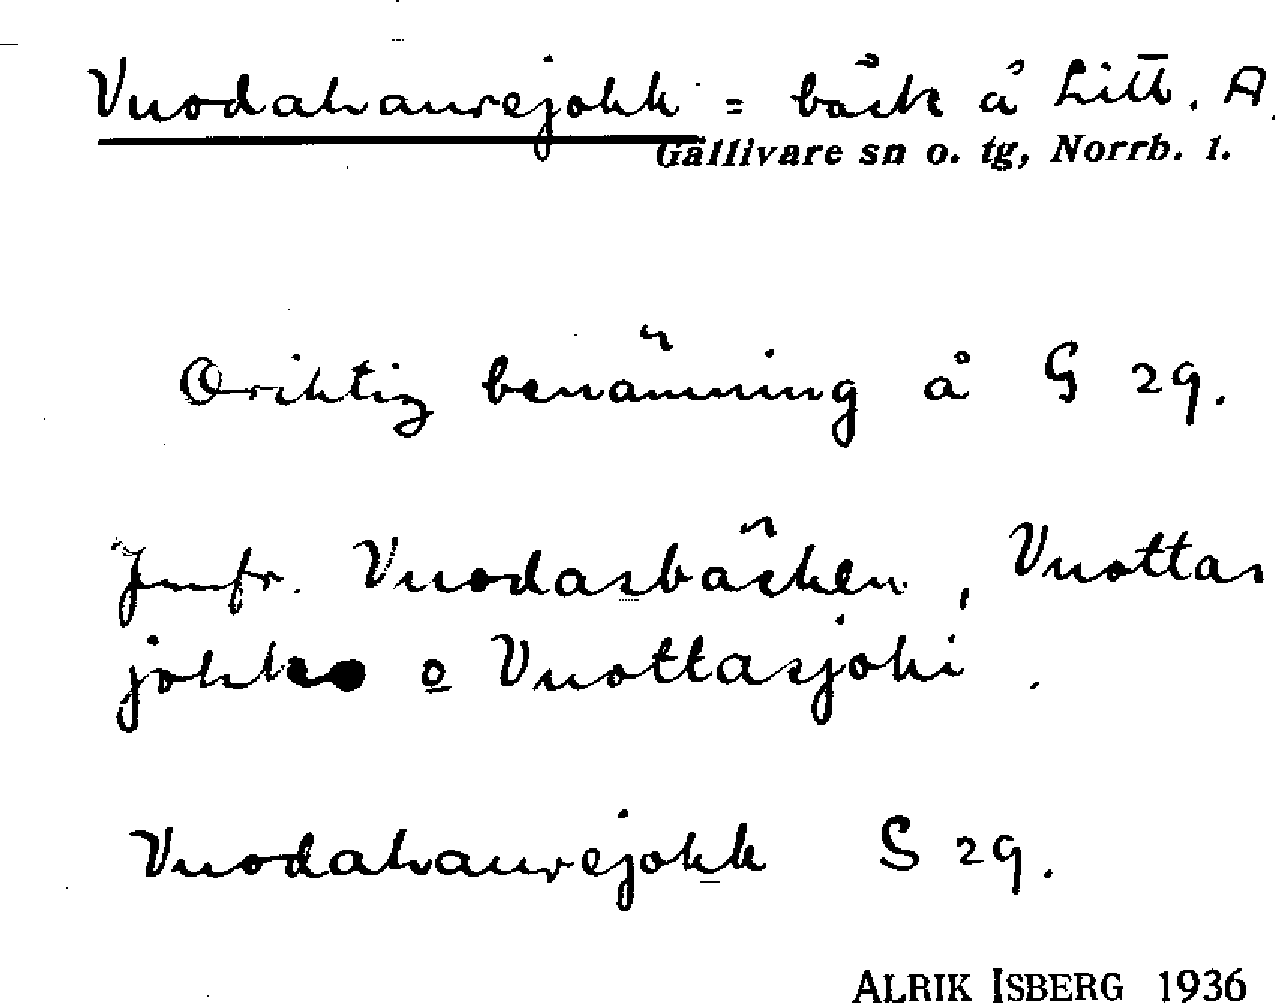 Vuodahaurejokk = bäck å Litt. A.
Gällivare sn o. tg, Norrb. l.
Oriktig benämning å G 29.
Jmfr. Vuodasbäcken, Vuottas
jokk o Vuottasjoki.
Vuodahaurejokk G 29.
ALRIK ISBERG 1936